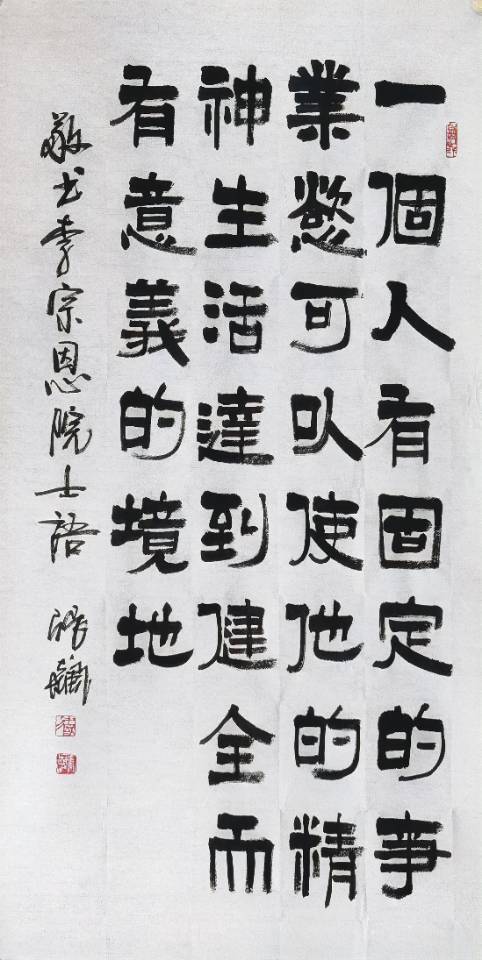 一個人有固定的事
業慾可以使他的精
神生活達到健全而
有意義的境地
敬书李宗恩院士語